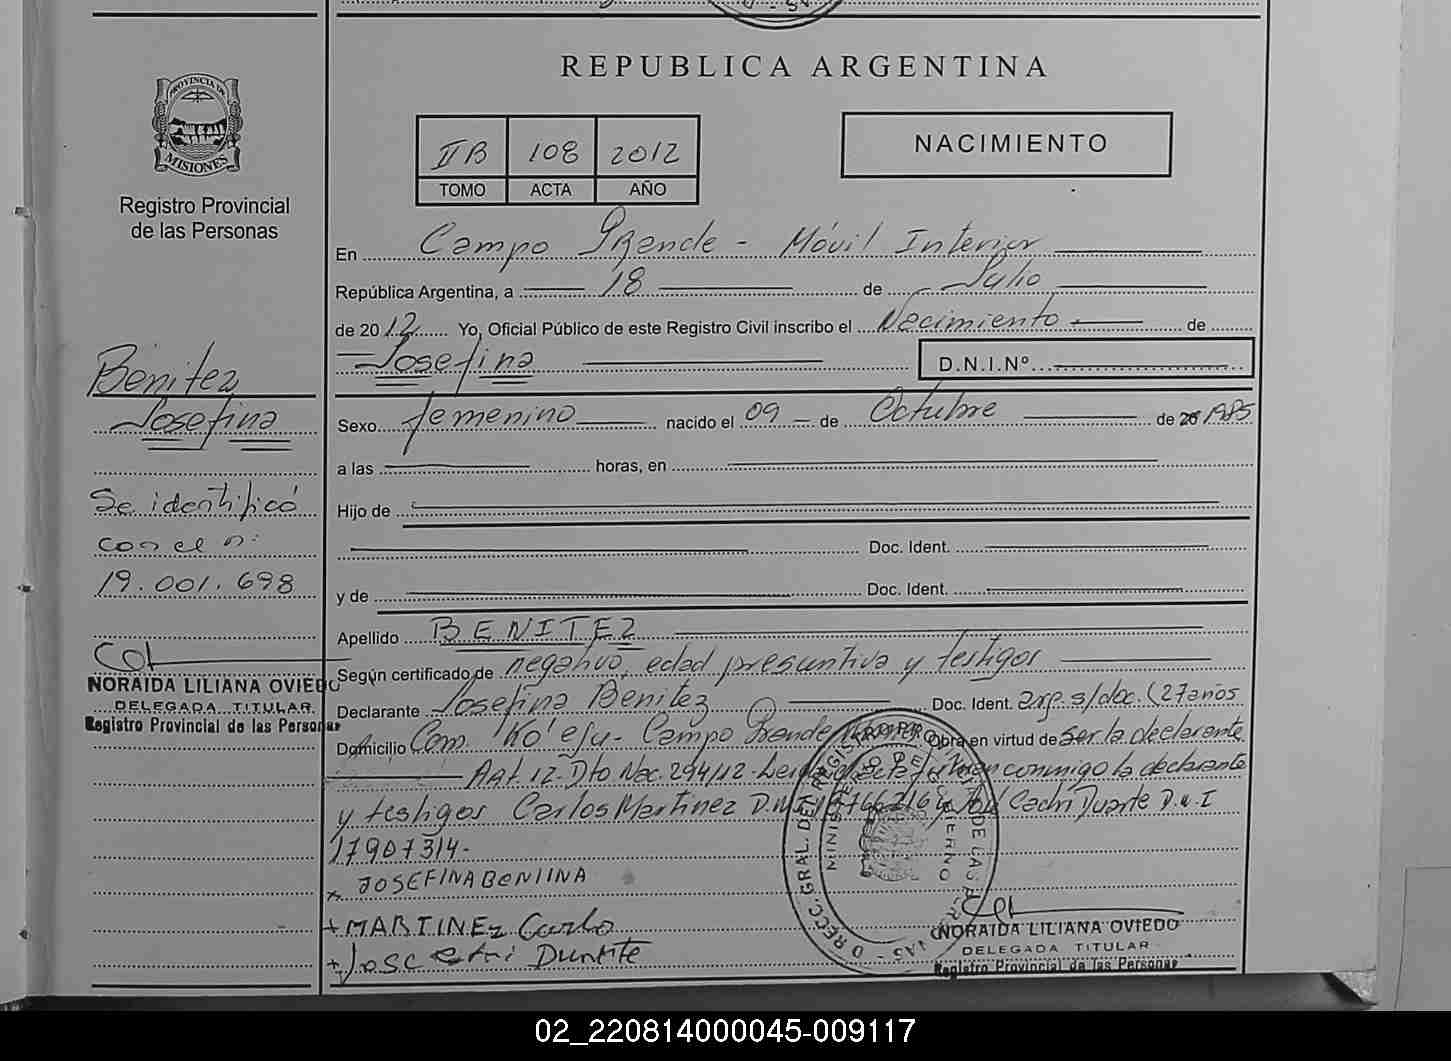 REPUBLICA ARGENTINA
PROVINCIA DE
MISIONES
Registro Provincial
de las Personas
IIB 108 2012
TOMO ACTA AÑO
NACIMIENTO
En Campo Grande - Móvil Interior
República Argentina, a 18 de Julio
de 2012 Yo, Oficial Público de este Registro Civil inscribo el Nacimiento de
Josefina D.N.I.Nº
Sexo femenino nacido el 09 de Octubre de 20 1985
a las horas, en
Hijo de
Doc. Ident.
y de Doc. Ident.
Apellido BENITEZ
Según certificado de negativo, edad presuntiva y testigos
Declarante Josefina Benitez Doc. Ident. arg. s/doc. (27 años
Domicilio Com. 'Ko' eju - Campo Grande Obra en virtud de ser la declarante
Art. 12. Dto Nac. 294/12 - conmigo la declarante
y testigos Carlos Martinez y José Duarte D.N.I
17907314-
x JOSEFINA BENIINA
+ MARTINEZ Carlo
+ Jose Duarte
Benitez
Josefina
Se identificó
con el n:
19.001.698
NORAIDA LILIANA OVIEDO
DELEGADA TITULAR
Registro Provincial de las Personas
NORAIDA LILIANA OVIEDO
DELEGADA TITULAR
Registro Provincial de las Personas
02_220814000045-009117